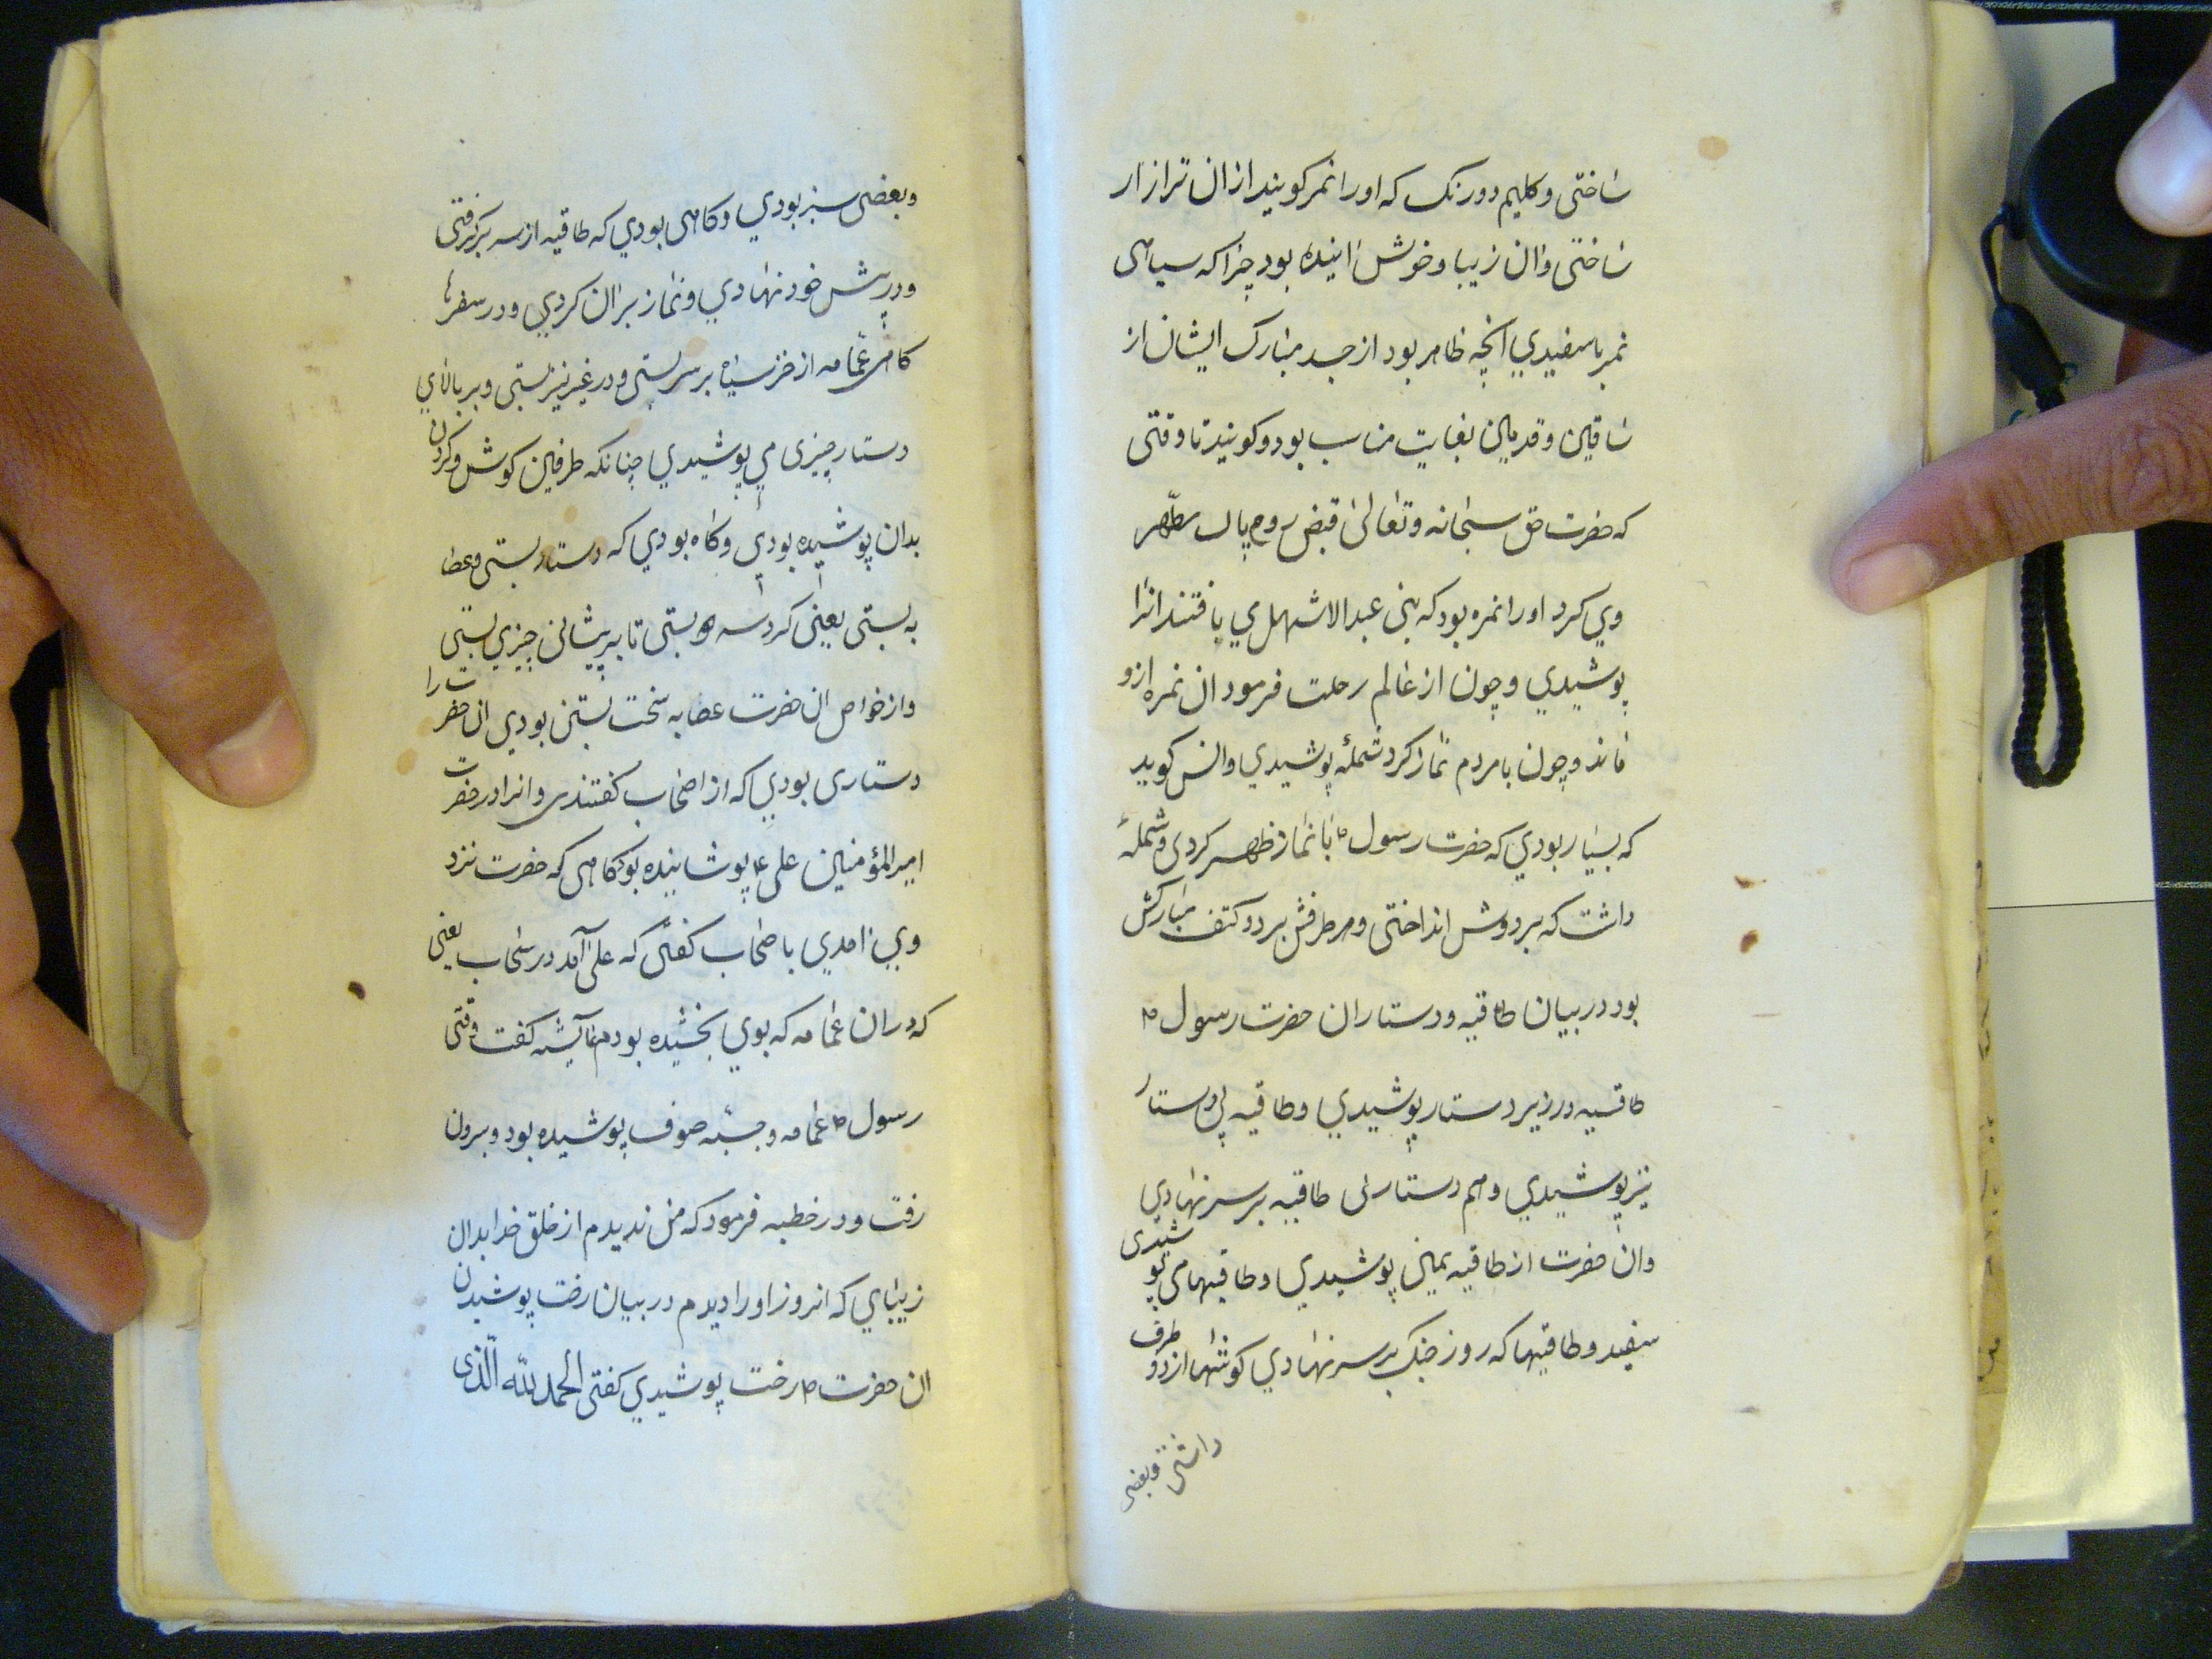 ساختی و کلیم دو رنک که اورا نمر کویند ازان تر ازار
ساختی وان زیبا و خوش اینده بود چرا که سیاهی
نمر با سفیدی انچه ظاهر بود از جسد مبارک ایشان از
ساقین و قدمین بغایت مناسب بود و کویند تا وقتی
که حضرت حق سبحانه و تعالی قبض روح پاک مطهر
وی کرد اورا نمره بود که بنی عبد الاشهل می بافتند انرا
پوشیدی و چون از عالم رحلت فرمود ان نمره ازو
ماند و چون با مردم نماز کرد شملهٔ پوشیدی و انس کوید
که بسیار بودی که حضرت رسول ص با ما نماز ظهر کردی و شملهٔ
داشت که بر دوش انداختی و هر طرفش بر دو کتف مبارکش
بود در بیان طاقیه و دستار ان حضرت رسول ص
طاقیه در زیر دستار پوشیدی و طاقیه بی دستار
نیز پوشیدی و هم دستار بی طاقیه بر سر نهادی
وان حضرت از طاقیه یمنی پوشیدی و طاقیها می پوشیدی
سفید و طاقیها که روز جنک بر سر نهادی کوشها از دو طرف
داشتی و بعضی
و بعضی سبز بودی و کاهی بودی که طاقیه از سر برکرفتی
و در پیش خود نهادی و نماز بران کردی و در سفرها
کاهی عمامه از خز سیاه بر سر بستی و در غیر نیز بستی و بر بالای
دستار چیزی می پوشیدی چنانکه طرفین کوش و کردن
بدان پوشیده بودی و کاه بودی که دستار بستی و عصا
به بستی یعنی کرد سر بستی تا بر پیشانی چیزی بستی
و از خواص ان حضرت عصابه سخت بستن بودی ان حضرت را
دستاری بودی که انرا سحاب کفتندی و انرا در حضرت
امیر المؤمنین علی ع پوشانیده بود کاهی که حضرت نزد
وی امدی با صحاب کفتی که علی آمد در سحاب یعنی
که دران عمامه که بوی بخشیده بودم عایشه کفت وقتی
رسول ص عمامه و جبّه صوف پوشیده بود و بیرون
رفت و در خطبه فرمود که من ندیدم از خلق خدا بدان
زیبایی که انروز اورا دیدم در بیان رخت پوشیدن
ان حضرت ص رخت پوشیدی کفتی الحمد لله الّذی